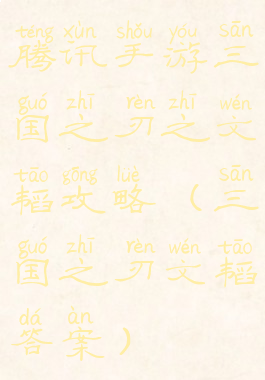 téng xùn shǒu yóu sān
腾讯手游三
guó zhī rèn zhī wén
国之刃之文
tāo gōng lüè sān
韬攻略（三
guó zhī rèn wén tāo
国之刃文韬
dá àn
答案）